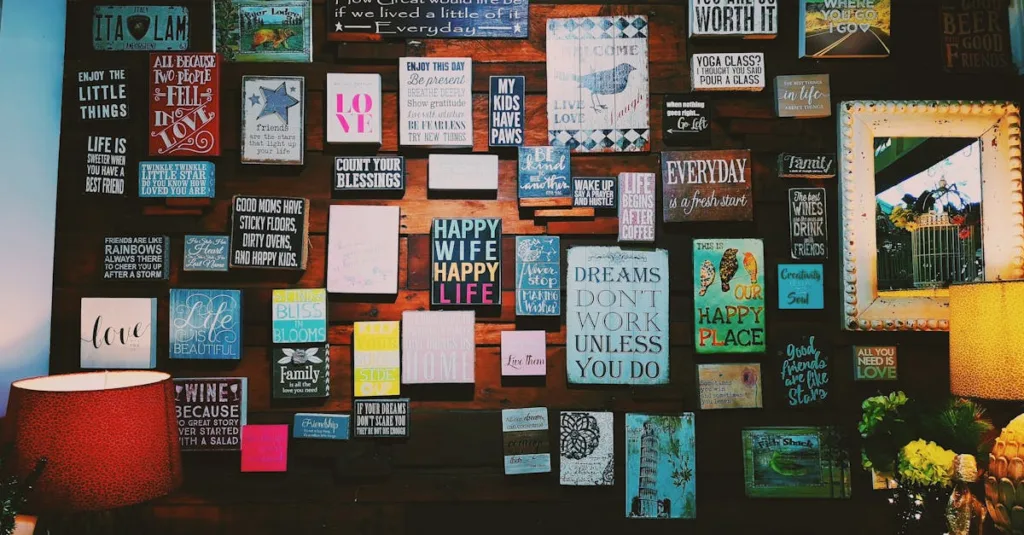 ITA LAM
How Great would life be
if we lived a little of it
Everyday
YOU ARE SO
WORTH IT
WHERE
YOU GO
I GO
BEER
GOOD
FRIENDS
ENJOY THE
LITTLE
THINGS
ALL BECAUSE
TWO PEOPLE
FELL
IN
LOVE
friends
are the stars that
light up your
sky
LO
VE
ENJOY THIS DAY
Be present
BREATHE DEEPLY
Show gratitude
BE FEARLESS
TRY NEW THINGS
MY
KIDS
HAVE
PAWS
WELCOME
LIVE
LOVE
Laugh
YOGA CLASS?
I THOUGHT YOU SAID
POUR A CLASS
when nothing
goes right...
Go Left
in life
LIFE IS
SWEETER WHEN
YOU HAVE A
BEST FRIEND
TWINKLE TWINKLE
LITTLE STAR
DO YOU KNOW HOW
LOVED YOU ARE
COUNT YOUR
BLESSINGS
BE
kind
one
another
WAKE UP
SAY A PRAYER
AND HUSTLE
LIFE
BEGINS
AFTER
COFFEE
EVERYDAY
is a fresh start
Family
GOOD MOMS HAVE
STICKY FLOORS,
DIRTY OVENS,
AND HAPPY KIDS
THE BEST
WINES
ARE THE ONES WE
DRINK
WITH
FRIENDS
FRIENDS ARE LIKE
RAINBOWS
ALWAYS THERE
TO CHEER YOU UP
AFTER A STORM
HAPPY
WIFE
HAPPY
LIFE
Never
stop
MAKING
Wishes
DREAMS
DON'T
WORK
UNLESS
YOU DO
THIS IS
OUR
HAPPY
PLACE
Creativity
Soul
love
Life
IS
BEAUTIFUL
BLISS
IN
BLOOMS
Family
is all the
love you need
HOME
Live them
Good
friends
are like
stars
ALL YOU
NEED IS
LOVE
WINE
BECAUSE
NO GREAT STORY
EVER STARTED
WITH A SALAD
Friendship
IF YOUR DREAMS
DON'T SCARE YOU
THEY'RE NOT BIG ENOUGH